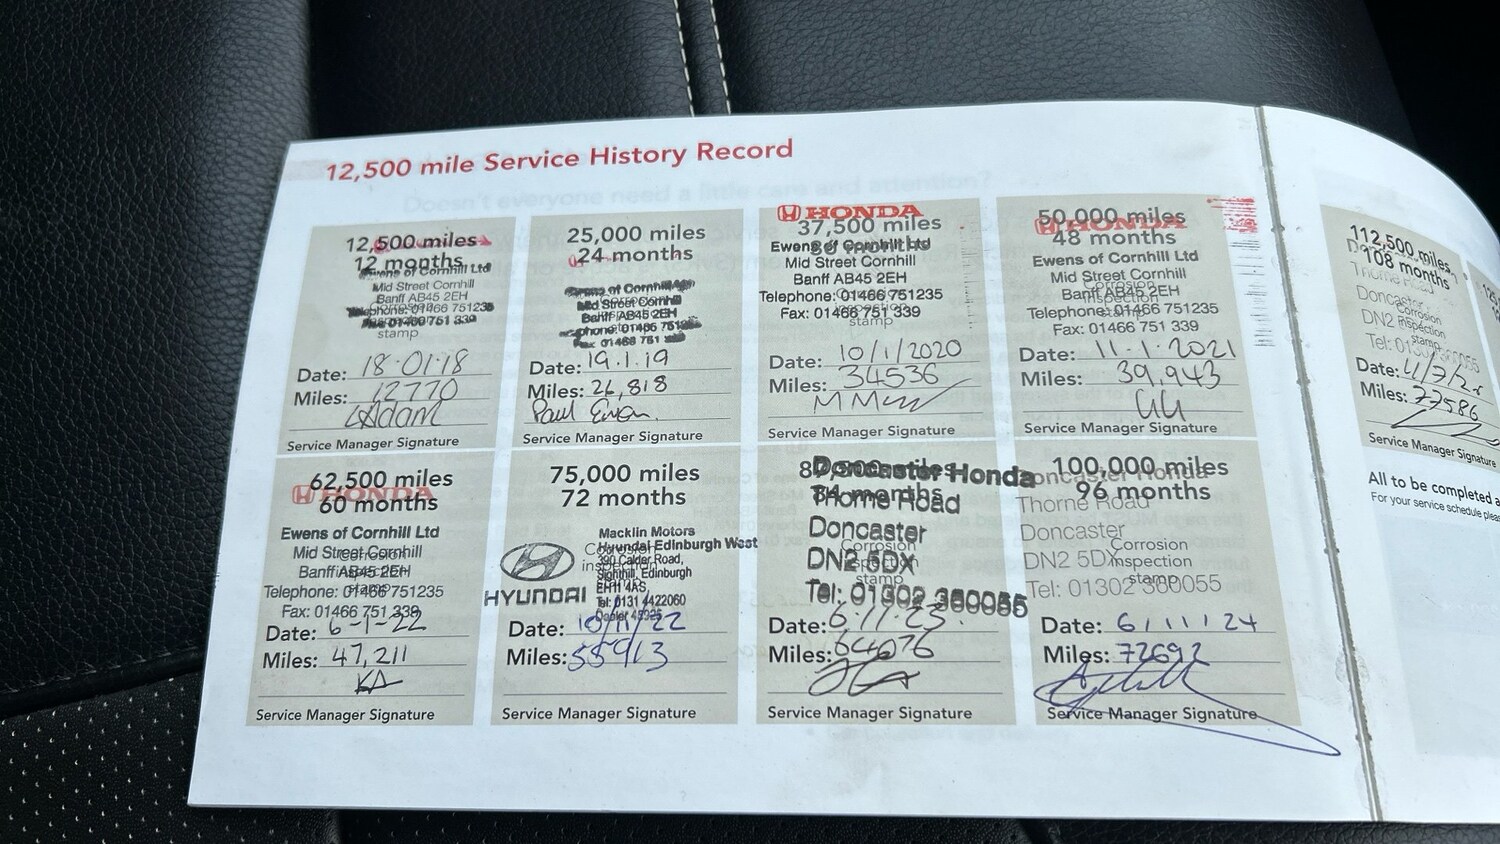 12,500 mile Service History Record
12,500 miles
12 months
Ewens of Cornhill Ltd
Mid Street Cornhill
Banff AB45 2EH
Telephone: 01466 751235
Fax: 01466 751 339
stamp
Date: 18·01·18
Miles: 12770
Adam
Service Manager Signature
25,000 miles
24 months
Ewens of Cornhill
Mid Street Cornhill
Banff AB45 2EH
phone: 01466 751235
Fax: 01466 751
stamp
Date: 19.1.19
Miles: 26,818
Paul Ewen
Service Manager Signature
HONDA
37,500 miles
Ewens of Cornhill Ltd
Mid Street Cornhill
Banff AB45 2EH
Telephone: 01466 751235
Fax: 01466 751 339
stamp
Date: 10/1/2020
Miles: 34536
Service Manager Signature
HONDA
50,000 miles
48 months
Ewens of Cornhill Ltd
Mid Street Cornhill
Corrosion
Banff AB45 2EH
inspection
Telephone: 01466 751235
stamp
Fax: 01466 751 339
Date: 11-1-2021
Miles: 39,943
Service Manager Signature
112,500 miles
108 months
Thorne Road
Doncaster
Corrosion
DN2
inspection
stamp
Date:
Miles: 77586
Service Manager Signature
62,500 miles
HONDA
60 months
Ewens of Cornhill Ltd
Mid Street Cornhill
Banff AB45 2EH
Telephone: 01466 751235
Fax: 01466 751 339
Date: 6-1-22
Miles: 47,211
KA
Service Manager Signature
75,000 miles
72 months
Macklin Motors
Hyundai Edinburgh West
Corrosion
inspection
290 Calder Road,
Sighthill, Edinburgh
EH11 4AS,
HYUNDAI
Tel: 0131 4422060
Date: 10/11/22
Miles: 55913
Service Manager Signature
Doncaster Honda
84 months
Thorne Road
Doncaster
DN2 5DX
Corrosion
inspection
stamp
Tel: 01302 360055
Date: 6.11.23.
Miles: 64076
Service Manager Signature
100,000 miles
Doncaster Honda
96 months
Thorne Road
Doncaster
DN2 5DX
Corrosion
inspection
stamp
Tel: 01302 360055
Date: 6/11/24
Miles: 72692
Service Manager Signature
All to be completed
For your service schedule